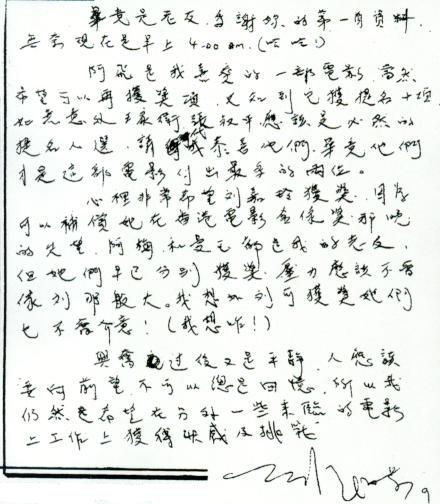 畢竟是老友，多謝妳的第一角資料，
無奈現在是早上 4.00 am. (哈哈!)
阿飛是我喜愛的一部電影，當然
希望可以再獲獎項，又知到它獲提名十項，
如無意外張衛張叔平應該是必然的
提名人選，請代我恭喜他們，畢竟他們
是這部電影付出最多的兩位。
心裡非常希望劉嘉玲獲獎，因為
可以補償她在香港電影金像獎那晚
的失望，阿梅和曼玉都是我的老友，
但她們早已分別獲獎，壓力應該不會
像劉那般大。我想如劉可獲獎她們
也不會介意！(我想咋！)
興奮過後又是平靜，人應該
要向前望，不可以總是回憶，所以我
仍然是希望在另外一些來臨的電影
上工作上獲得快感及挑戰